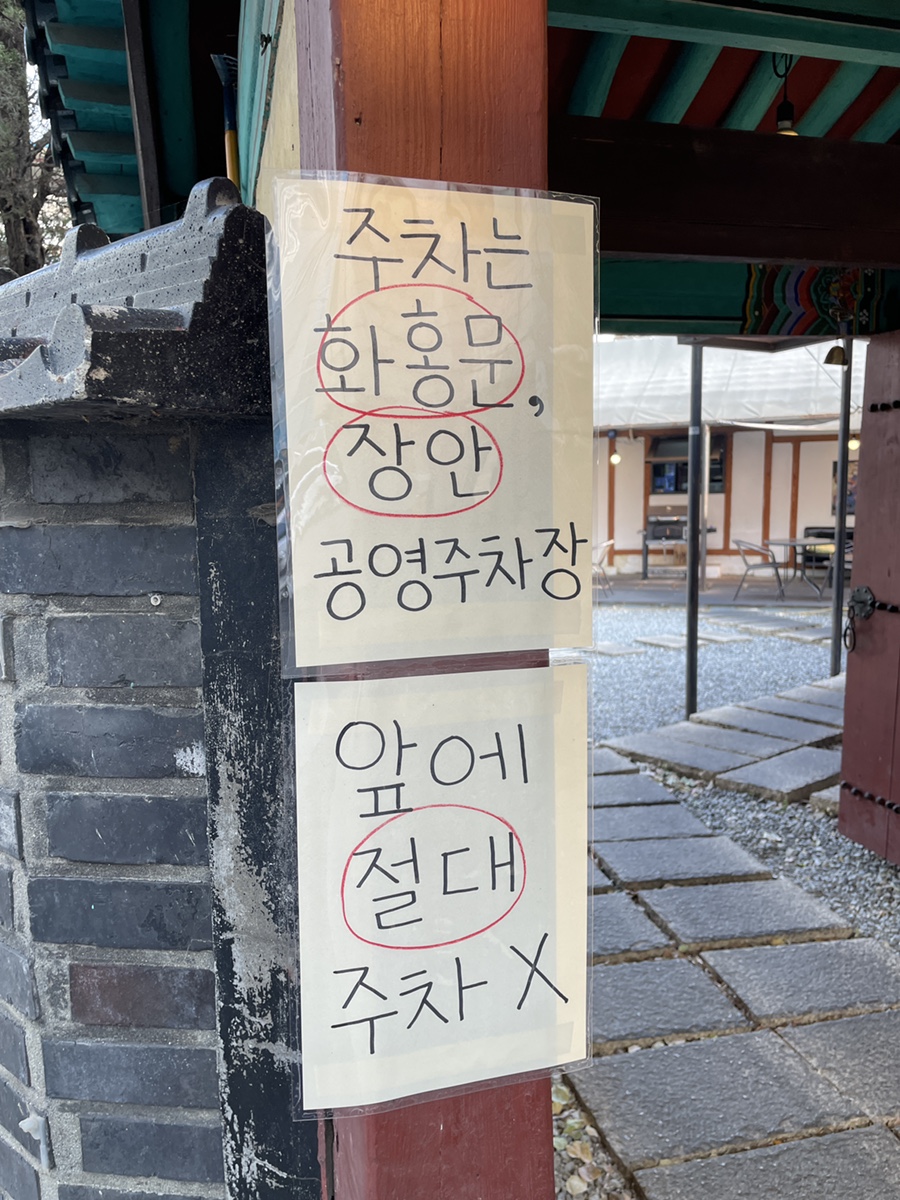 주차는
화홍문,
장안
공영주차장
앞에
절대
주차 X